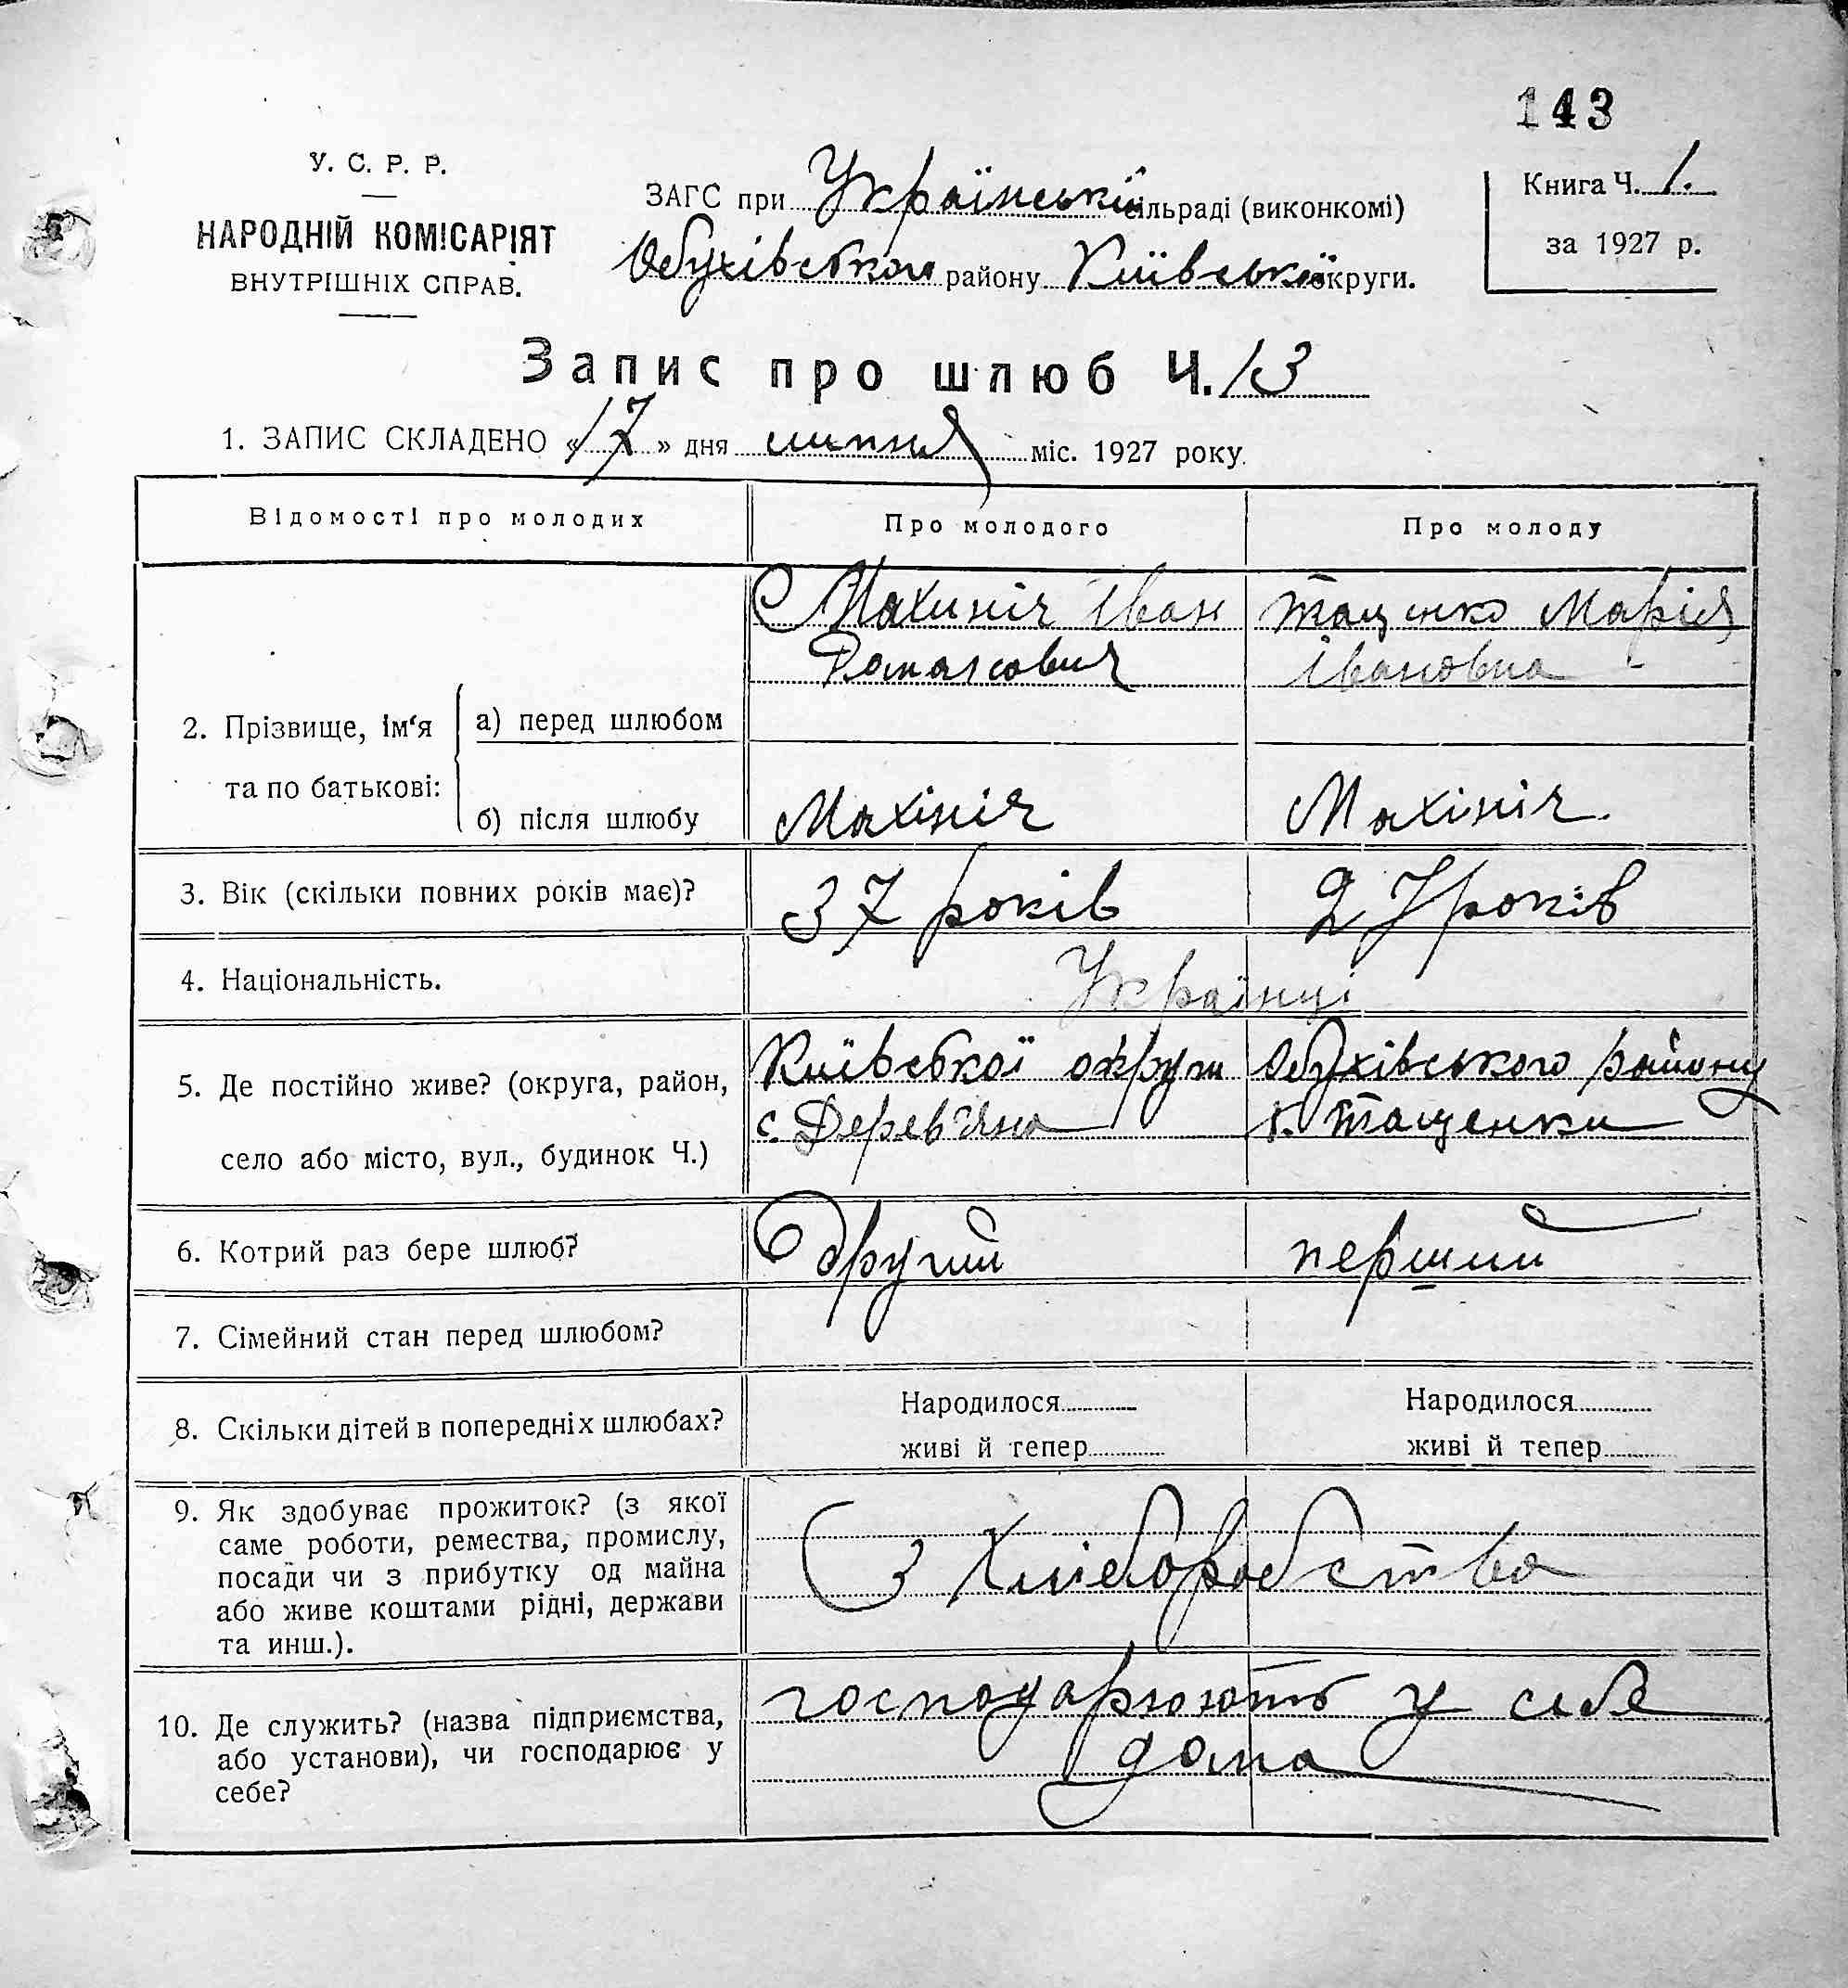 143
У. С. Р. Р.
НАРОДНІЙ КОМІСАРІЯТ
ВНУТРІШНІХ СПРАВ.
ЗАГС при Українській сільраді (виконкомі)
Обухівського району Київської округи.
Книга Ч. 1.
за 1927 р.
Запис про шлюб Ч. 13
1. ЗАПИС СКЛАДЕНО «17» дня липня міс. 1927 року.
Відомості про молодих
Про молодого
Про молоду
2. Прізвище, ім'я та по батькові:
а) перед шлюбом
Махиніч Іван
Тащенко Марія
Івановна
б) після шлюбу
Махініч
Махініч.
3. Вік (скільки повних років має)?
37 років
27 років
4. Національність.
Українці
5. Де постійно живе? (округа, район,
село або місто, вул., будинок Ч.)
Київської округи Обухівського району
с. Дерев'яна
х. Тащенки
6. Котрий раз бере шлюб?
другий
перший
7. Сімейний стан перед шлюбом?
8. Скільки дітей в попередніх шлюбах?
Народилося
живі й тепер
Народилося
живі й тепер
9. Як здобуває прожиток? (з якої
саме роботи, ремества, промислу,
посади чи з прибутку од майна
або живе коштами рідні, держави
та инш.).
З Хліборобства
10. Де служить? (назва підприємства,
або установи), чи господарює у
себе?
господарюють у себе
дома